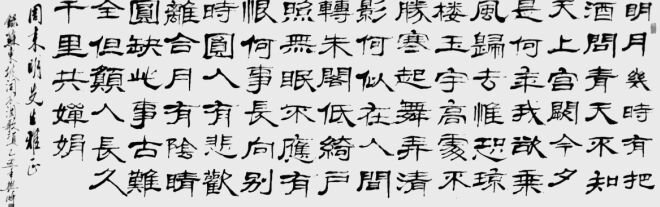 明月幾時有把
酒問青天不知
天上宮闕今夕
是何年我欲乘
風歸去惟恐瓊
樓玉宇高處不
勝寒起舞弄清
影何似在人間
轉朱閣低綺戶
照無眠不應有
恨何事長向別
時圓人有悲歡
離合月有陰晴
圓缺此事古難
全但願人長久
千里共嬋娟
明先生雅正